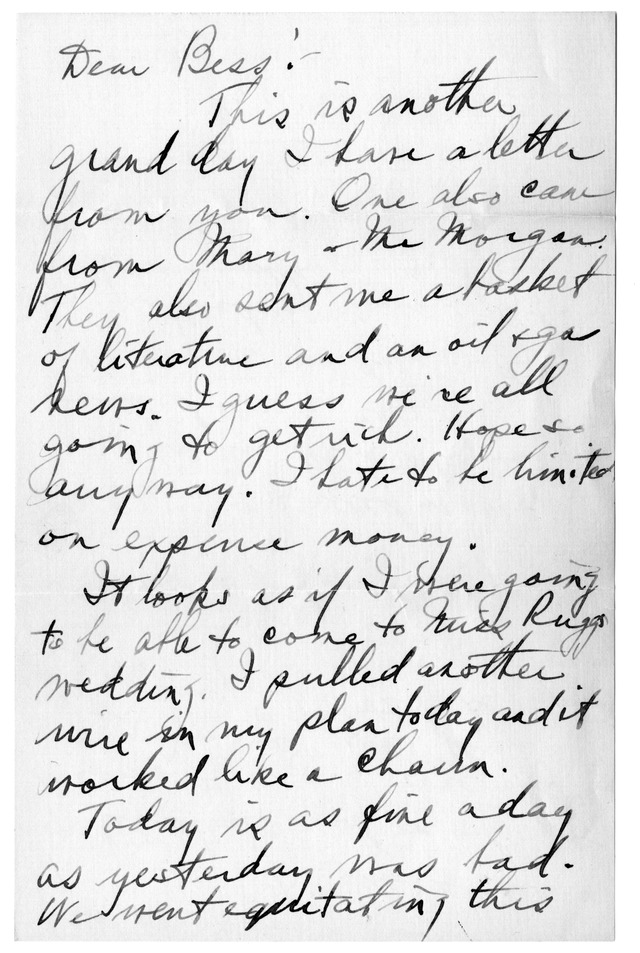 Dear Bess:-
This is another
grand day I have a letter
from you. One also cam
from Mary & Mr Morgan.
They also sent me a basket
of literature and an oil & ga
news. I guess we're all
going to get rich. Hope so
anyway. I hate to be limited
on expense money.
It looks as if I were going
to be able to come to Miss Ruggs
wedding. I pulled another
wire in my plan today and it
worked like a charm.
Today is as fine a day
as yesterday was bad.
We went equitating this